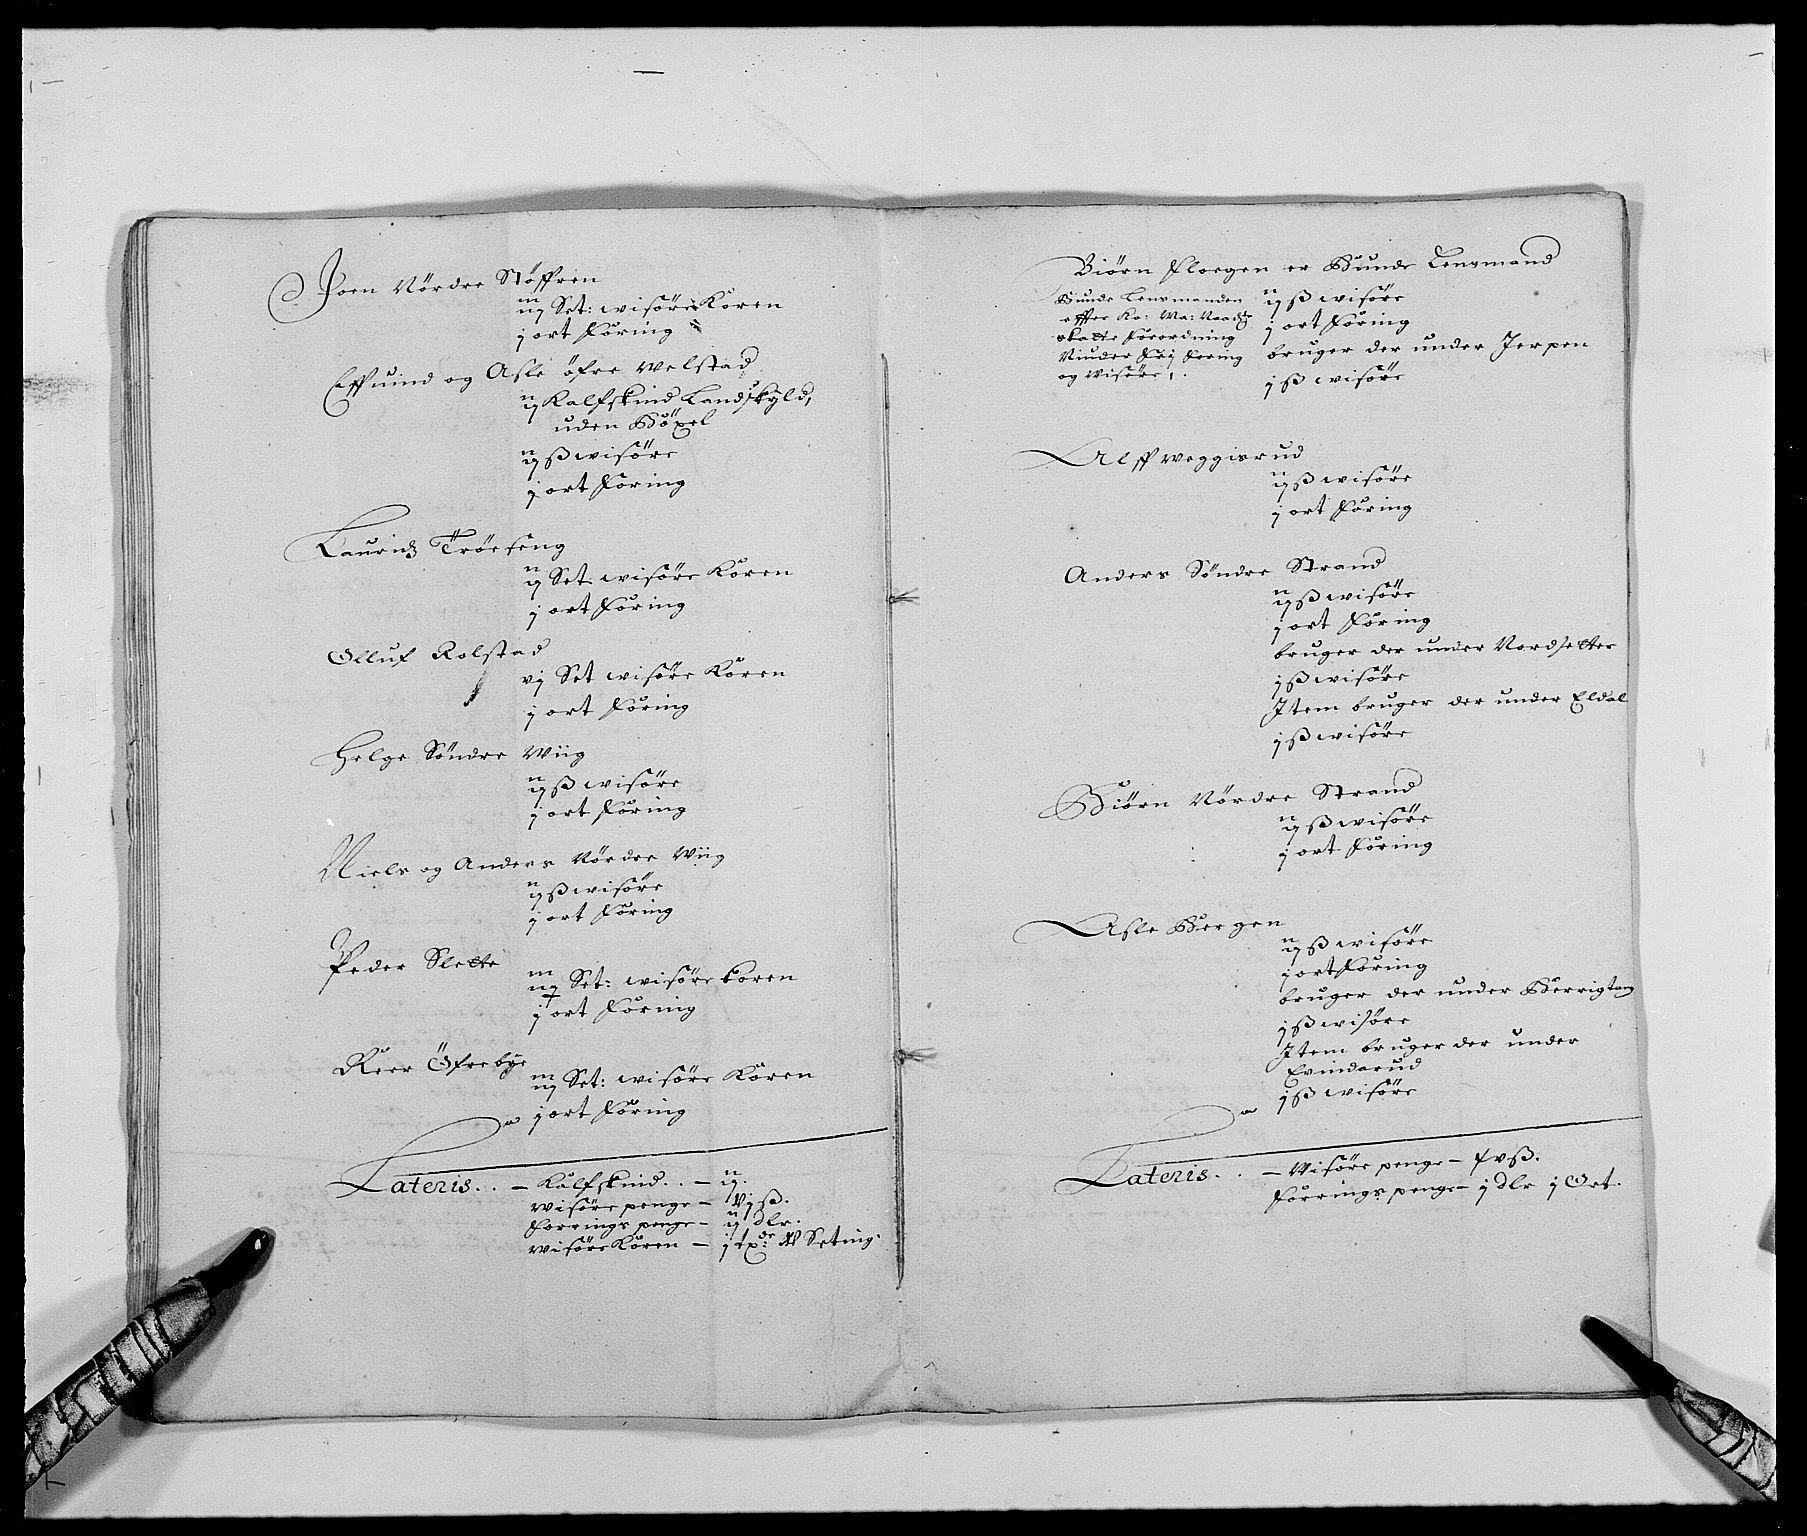 Joen Nördre Stöffren
iiij Set: wisöre Koren
j ort Föring
Effuind og Asle öfre Welstad
ij Kalfskind Landskyld,
uden Böxel
ij ß wisöre
j ort Föring
Lauridz Tröeseng
ij Set wisöre Koren
j ort Föring
Olluf Rolstad
vj Set wisöre Koren
j ort Föring
Helge Söndre Wiig
ij ß wisöre
j ort Föring
Niels og Anders Nördre Wiig
ij ß wisöre
j ort Föring
Peder Slette
iiij Set: wisöre koren
j ort Föring
Reer Öfrebye
iiij Set: wisöre Koren
j ort Föring
Lateris . . – Kalfskind . . – ij.
Wisöre penge – vj ß.
Forrings penge – ij dlr.
Wisöre Koren – j tp: de Seting.
Biörn Floegen er Bunde Lensmand
Bunde Lensmanden
effter Ko: Ma: Naadz
skatte Forordning
Niuder frj Foring
og Wisöre,
ij ß wisöre
j ort Föring
bruger der under Jerpen
j ß wisöre
Alff Weggisrud
ij ß wisöre
j ort Föring
Anders Söndre Strand
ij ß wisöre
j ort Föring
bruger der under Nordsetter
j ß wisöre
Item bruger der under Eldal
j ß wisöre
Biörn Nördre Strand
ij ß wisöre
j ort Föring
Asle Bergen
ij ß wisöre
j ort Föring
bruger der under Berrigtang
j ß wisöre
Item bruger der under
Evindsrud
j ß wisöre
Lateris . . – Wisöre penge – xv ß.
Forrings penge – j dlr j Ort.